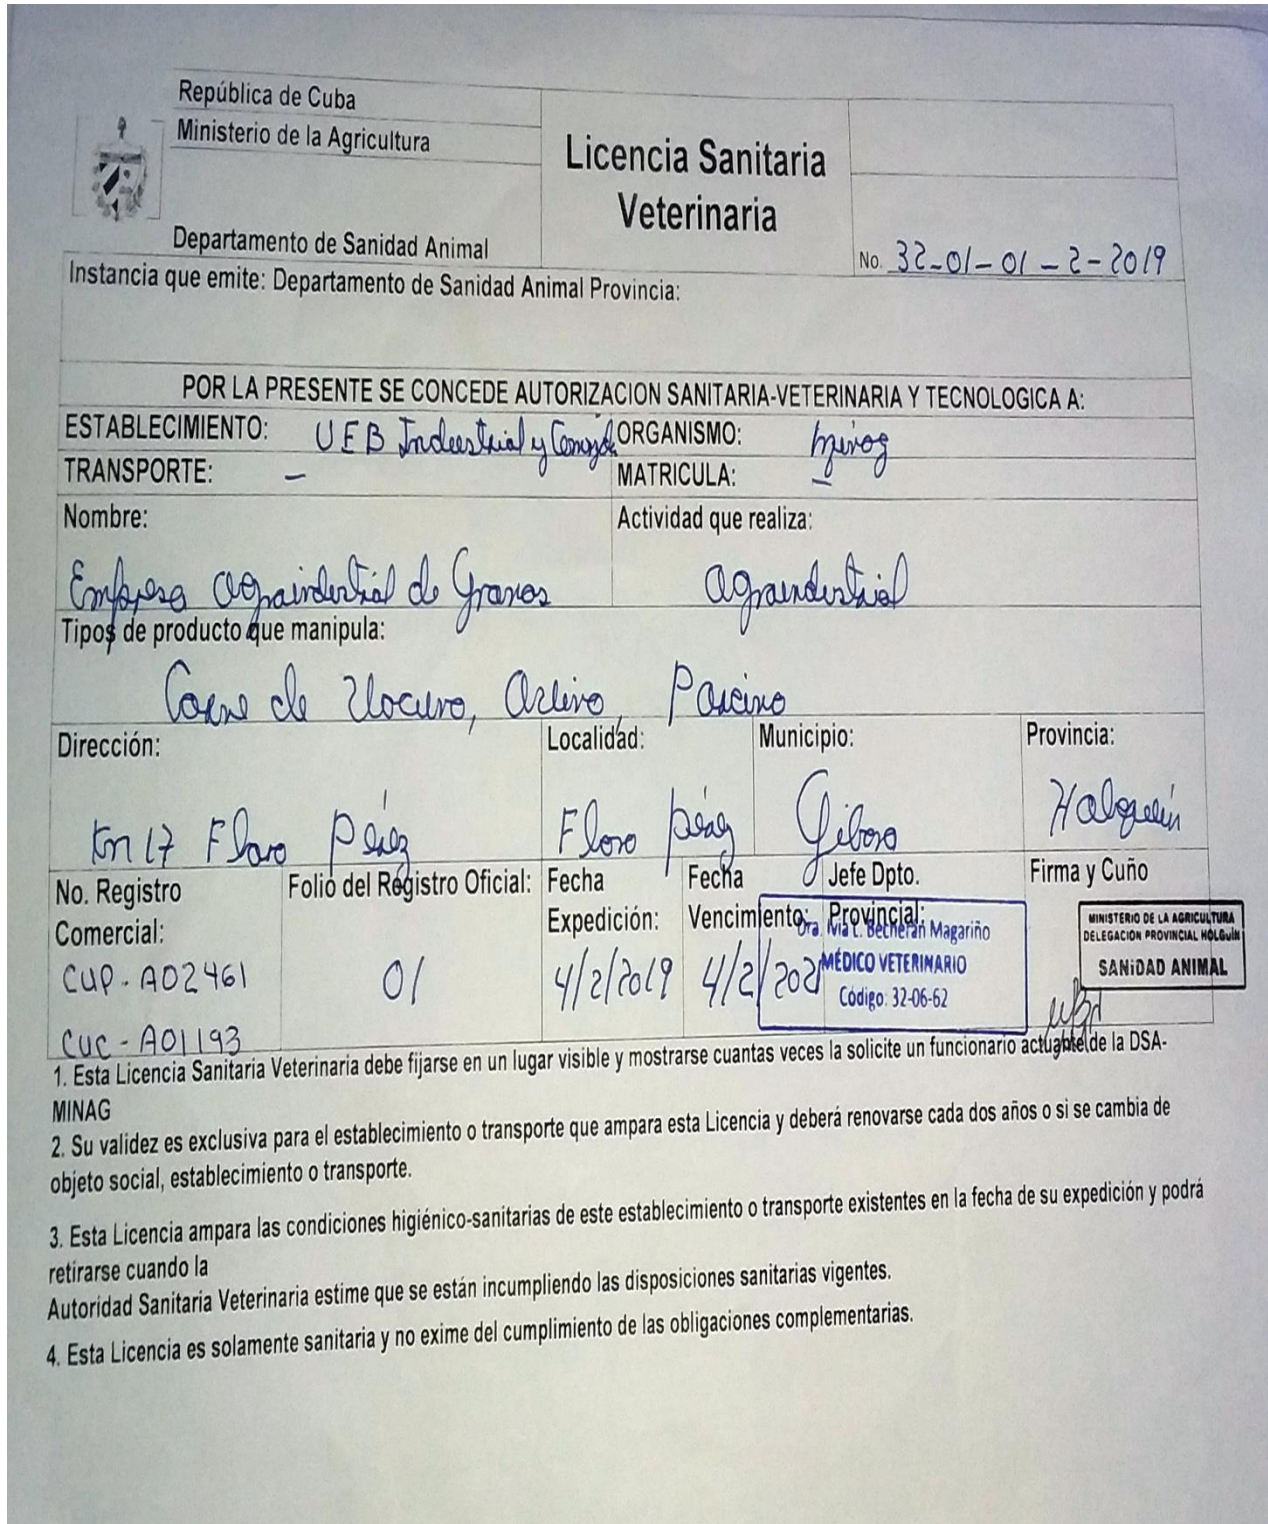 República de Cuba
Ministerio de la Agricultura
Departamento de Sanidad Animal
Licencia Sanitaria
Veterinaria
No. 32-01-01-2-2019
Instancia que emite: Departamento de Sanidad Animal Provincia:
POR LA PRESENTE SE CONCEDE AUTORIZACION SANITARIA-VETERINARIA Y TECNOLOGICA A:
ESTABLECIMIENTO: UEB Industrial y ORGANISMO:
TRANSPORTE: - MATRICULA: -
Nombre: Actividad que realiza:
Empresa Agroindustrial de Granos Agroindustrial
Tipos de producto que manipula:
Carne de Vacuno, Ovino, Porcino
Dirección: Localidad: Municipio: Provincia:
Km 17 Floro Pérez Floro Pérez Gibara Holguín
No. Registro Comercial: Folio del Registro Oficial: Fecha Expedición: Fecha Vencimiento: Jefe Dpto. Provincial: Firma y Cuño
CUP-A02461 01 4/2/2019 4/2/202
CUC-A01193
Dra. Becherán Magariño
MÉDICO VETERINARIO
Código: 32-06-62
MINISTERIO DE LA AGRICULTURA
DELEGACION PROVINCIAL HOLGUÍN
SANIDAD ANIMAL
1. Esta Licencia Sanitaria Veterinaria debe fijarse en un lugar visible y mostrarse cuantas veces la solicite un funcionario actuante de la DSA-
MINAG
2. Su validez es exclusiva para el establecimiento o transporte que ampara esta Licencia y deberá renovarse cada dos años o si se cambia de
objeto social, establecimiento o transporte.
3. Esta Licencia ampara las condiciones higiénico-sanitarias de este establecimiento o transporte existentes en la fecha de su expedición y podrá
retirarse cuando la
Autoridad Sanitaria Veterinaria estime que se están incumpliendo las disposiciones sanitarias vigentes.
4. Esta Licencia es solamente sanitaria y no exime del cumplimiento de las obligaciones complementarias.